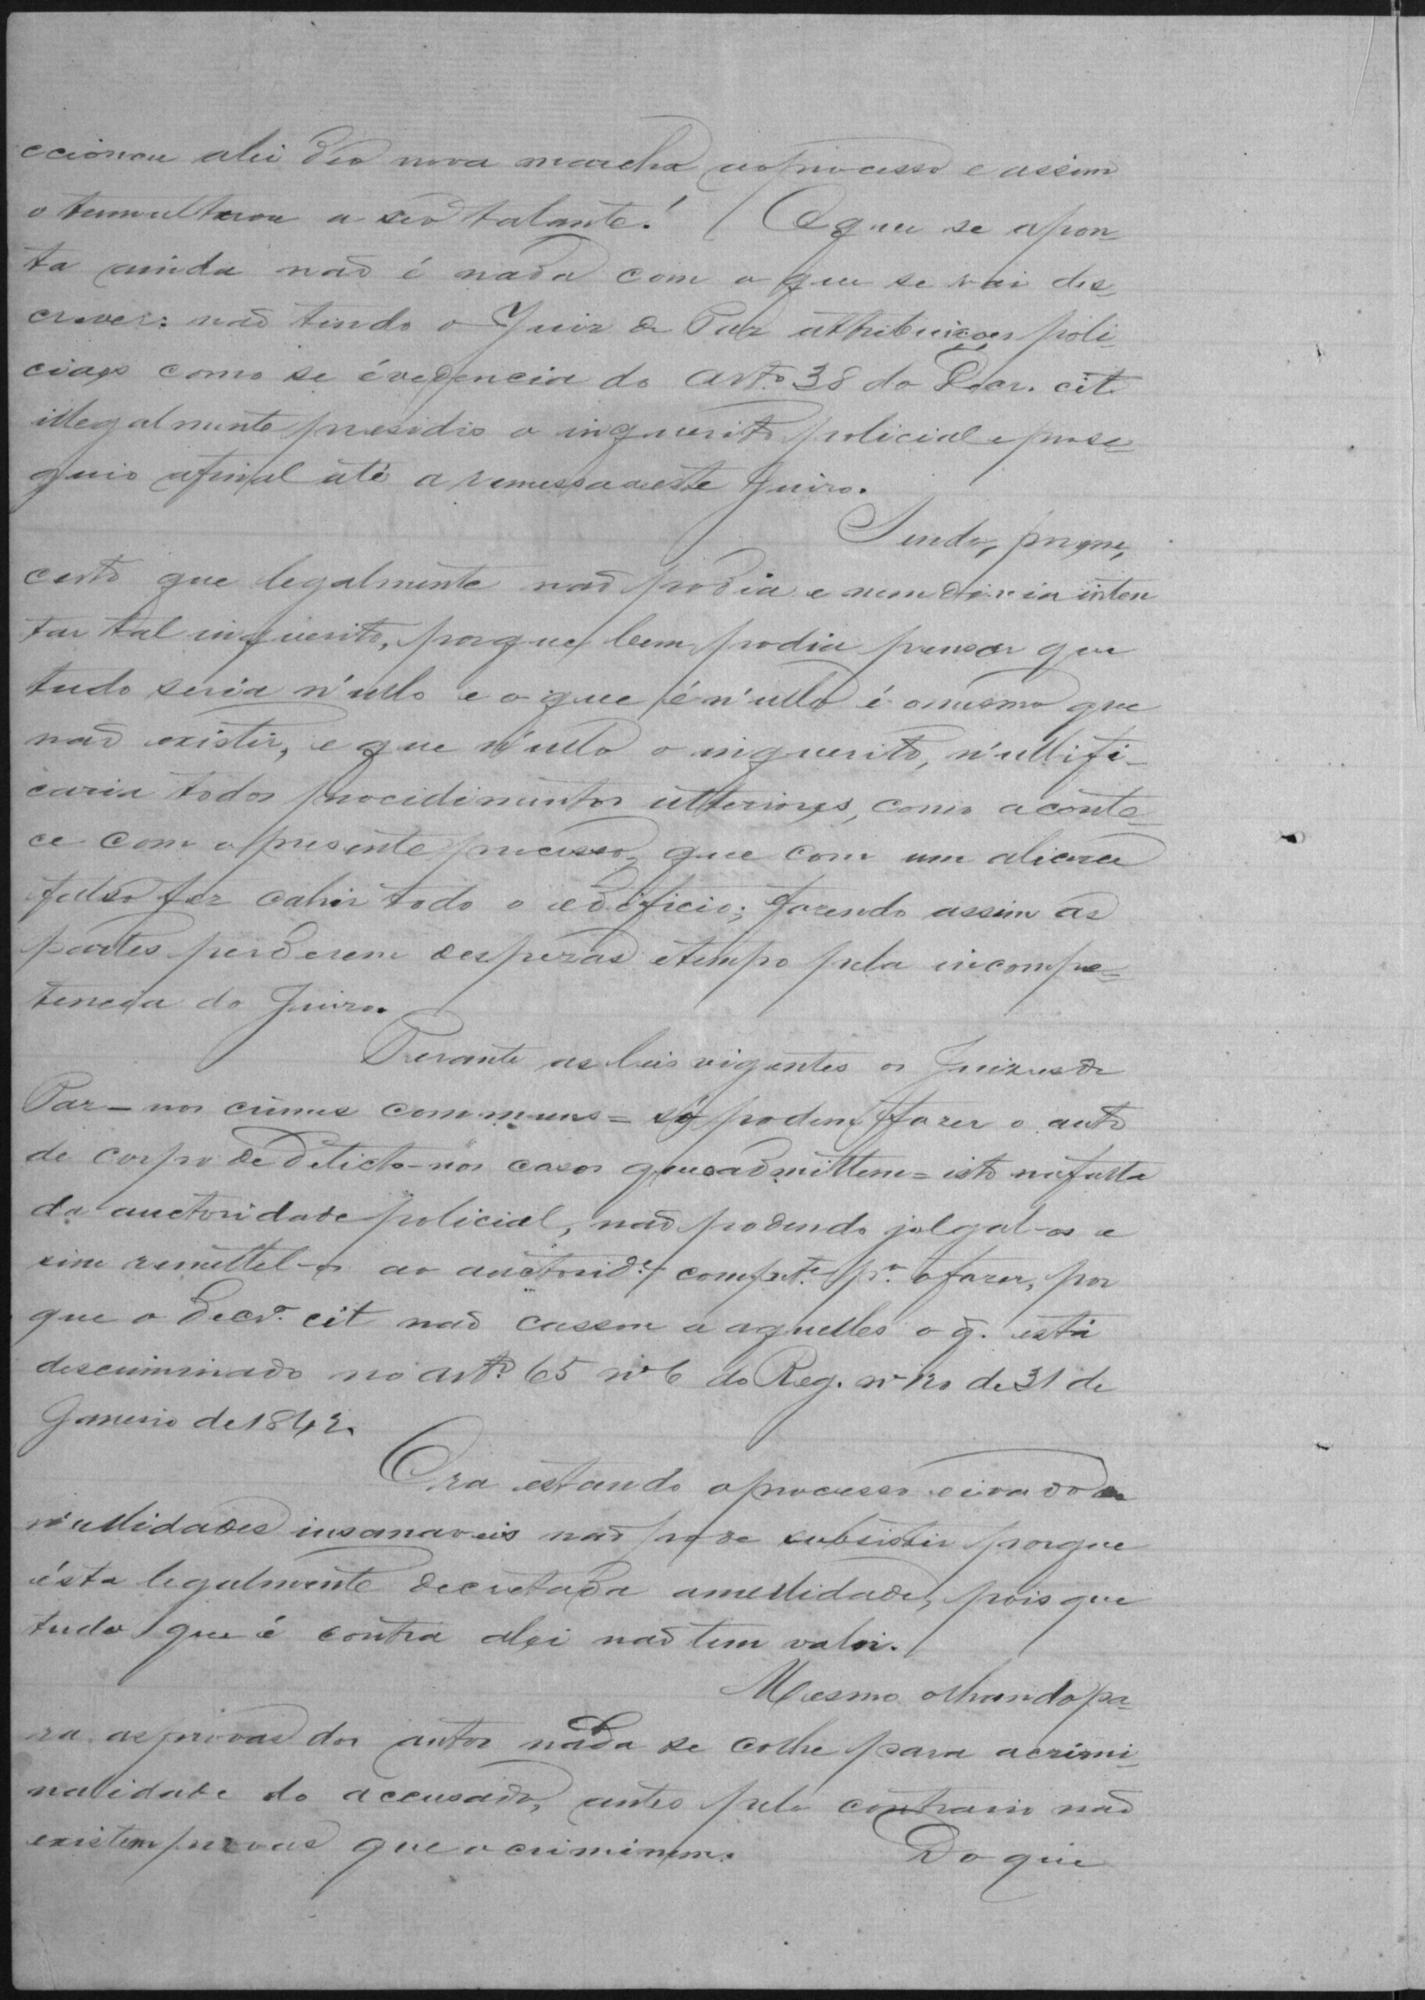 ccionou a lei deo nova marcha ao processo e assim
o tumultuou a seo talante! O que se apon-
ta ainda não é nada com o que se vai des-
crever: não tendo o Juiz de Paz attribuiçoes poli-
ciaes como se évedencia do art.º 38 do Decr. cit.
illegalmente presidio o inquerito policial e prose-
guio afinal até a remessa a este Juizo.
Sendo, porque,
certo que legalmente não podia e nem devia inten
tar tal inquerito, porque bem podia pensar que
tudo seria n'ullo e o que é n'ullo é o mesmo que
não existir, e que n'ullo o inquerito, n'ullifi-
caria todos procidimentos ulteriores, como aconte-
ce com o presente processo, que com um alicerce
falso fez cahir todo o edificio; fazendo assim as
partes perderem despezas e tempo pela incompe-
tencia do Juizo.
Perante as leis vigentes os Juizes de
Paz - nos crimes communs = só podem fazer o auto
de corpo de delicto - nos casos que admittem = isto na falta
da auctoridade policial, não podendo julgal-os e
sim remettel-os ao auctorid.e compt.e p.a o fazer, por
que o Decr.º cit não cassou a aquelles o q. está
descriminado no art.º 65 nº 6 do Reg. nº 120 de 31 de
Janeiro de 1842.
Ora estando o processo eivado de
n'ullidades insanaveis não pode subsistir porque
ésta legalmente decretada a nullidade, pois que
tudo que é contra a lei não tem valor.
Mesmo olhando pa-
ra as provas dos autos nada se colhe para a crimi-
nalidade do accusado, antes pelo contrario não
existem provas que o criminem. Do que